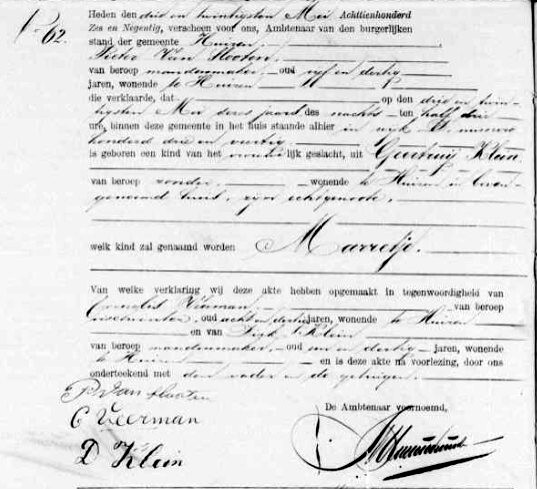 No 62.
Heden den drie en twintigsten Mei Achttienhonderd
Zes en Negentig, verscheen voor ons, Ambtenaar van den burgerlijken
stand der gemeente Huizen
Pieter van Slooten
van beroep mandenmaker, oud vyf en dertig
jaren, wonende te Huizen
die verklaarde, dat op den drie en twin-
tigsten Mei dezes jaars des nachts ten half drie
ure, binnen deze gemeente in het huis staande alhier in wyk nummer
honderd drie en veertig
is geboren een kind van het vrouwelijk geslacht, uit Geertruij Klein
van beroep zonder, wonende te Huizen in boven-
genoemd huis, zyne echtgenoote.
welk kind zal genaamd worden Marretje.
Van welke verklaring wij deze akte hebben opgemaakt in tegenwoordigheid van
Cornelis Veerman van beroep
oud acht en dertig jaren, wonende te Huizen
en van Dirk Klein
van beroep mandenmaker, oud en dertig jaren, wonende
te Huizen en is deze akte na voorlezing, door ons
onderteekend met den vader en de getuigen.
P. van Slooten
C Veerman
De Ambtenaar voornoemd,
D Klein